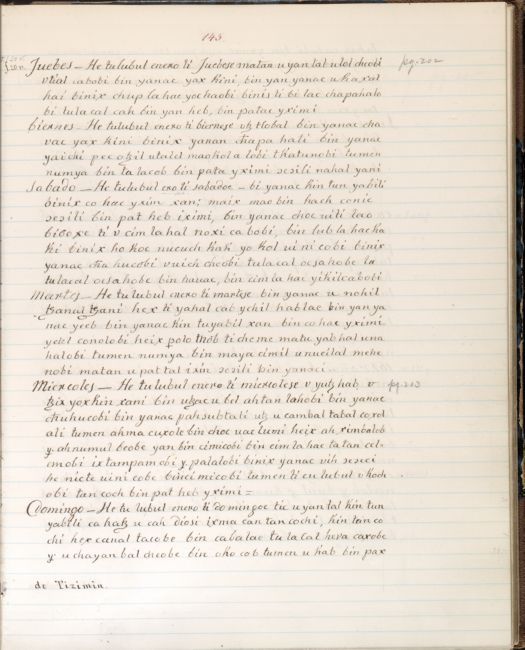 143.
Juebes — He tulubul enero ti Juebese matan u yanlal ulol chcobi
pg. 202
utial cabobi bin yanac yax kini, bin yan yanac u kaxal
hai binix chup lahac yochaobi binis ti bi lac chapahalo
bi tulacal cah bin yan heb, bin patac yximi
biernes — He tulubul enero ti biernese utz tlobal bin yanac cha
vac yax kini binix yanan chapa hali bin yanac
yaichi pecoszil utalel maokola lobi tkatunobi tumen
numya bin lalacob bin pata yximi sesili nahal yani
Sabado — He tulubul enero ti sabadoe — bi yanac kin tun yabili
binix co hac yxim xan; maix mac bin hach conic
sesili bin pat heb iximi, bin yanac choc uili lao
bi ti v cim lahal noxi cabobi, bin lub la hacha
ki binix hokoc nucuch kak yokol uinicobi binix
yanac cha hucobi vuich chcobi tulacal ocsahobe la
tulacal ocsahobe bin hauac, bin cim la hac yikilcabobi
Martes — He tu lubul enero ti martese bin yanac u nohil
hex ti yahal cab ychil hablae bin yan ya
nac yeeb bin yanac kin tuyabil xan bin co hac yximi
yetel conolobi heix polo mob ti cheme matu yabhal una
halobi tumen numya bin maya cimil unucilal mehe
nobi matan u pat tal ixim sesili bin yanaci
Miercoles — He tu lubul enero ti miercolese v yutz hab v
pg. 203
yoxkin xani bin utzac u bel ahtan lahobi bin yanac
chuhucobi bin yanac pahsubtali utz u cambal tabal coxol
ali tumen ahma cuxole bin choc uac luvni heix ah
y. ahnumul beobe yan bin cimicobi bin cim la hac ta tan cel
emobi ix tampamobi y. palalobi binix yanac vih
he nicte uini cobe binci micobi tumen ti cu lubul v koch
obi tan coch bin pat heb yximi =
Domingo — He tu lubul enero ti domingoe tic u yan lal kin tun
yabili ca hatz u cah diosi ixma can tan cochi, kin tan co
chi hex canal tacobe bin cabalac tu la cal heva caxobe
y u chayan bal chcobe bin oko cob tumen u hab bin pax
de Tizimin.